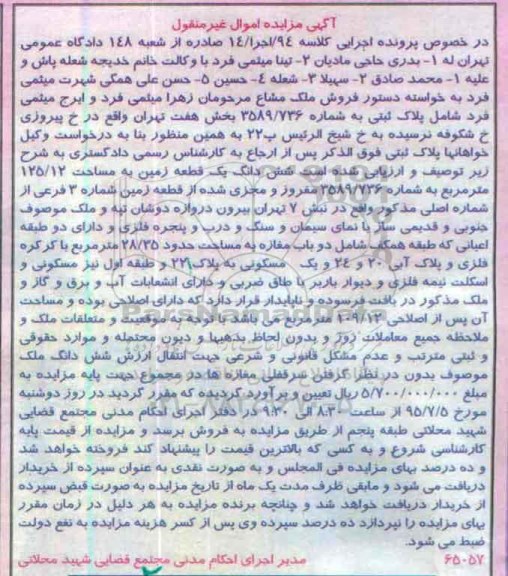 آگهی مزایده اموال غیرمنقول
در خصوص پرونده اجرایی کلاسه ۹۴/اجرا/۱۴ صادره از شعبه ۱۴۸ دادگاه عمومی
تهران له ۱- بدری حاجی مادیان ۲- تینا میثمی فرد با وکالت خانم خدیجه شعله پاش و
علیه ۱- محمد صادق ۲- سهیلا ۳- شعله ۴- حسین ۵- حسن علی همگی شهرت میثمی
فرد به خواسته دستور فروش ملک مشاع مرحومان زهرا میثمی فرد و ایرج میثمی
فرد شامل پلاک ثبتی به شماره ۳۵۸۹/۷۳۶ بخش هفت تهران واقع در خ پیروزی
خ شکوفه نرسیده به خ شیخ الرئیس پ۲۲ به همین منظور بنا به درخواست وکیل
خواهانها پلاک ثبتی فوق الذکر پس از ارجاع به کارشناس رسمی دادگستری به شرح
زیر توصیف و ارزیابی شده است شش دانگ یک قطعه زمین به مساحت ۱۲۵/۱۲
مترمربع به شماره ۳۵۸۹/۷۳۶ مفروز و مجزی شده از قطعه زمین شماره ۳ فرعی از
شماره اصلی مذکور واقع در بخش ۷ تهران بیرون دروازه دوشان تپه و ملک موصوف
جنوبی و قدیمی ساز با نمای سیمان و سنگ و درب و پنجره فلزی و دارای دو طبقه
اعیانی که طبقه همکف شامل دو باب مغازه به مساحت حدود ۲۸/۳۵ مترمربع با کرکره
فلزی و پلاک آبی ۲۰ و ۲۴ و یک مسکونی به پلاک ۲۲ و طبقه اول نیز مسکونی و
اسکلت نیمه فلزی و دیوار باربر با طاق ضربی و دارای انشعابات آب و برق و گاز و
ملک مذکور در بافت فرسوده و ناپایدار قرار دارد که دارای اصلاحی بوده و مساحت
آن پس از اصلاحی ۱۰۹/۱۳ مترمربع می باشد با توجه به موقعیت و متعلقات ملک و
ملاحظه جمیع معاملات روز و بدون لحاظ بدهیها و دیون محتمله و موارد حقوقی
و ثبتی مترتب و عدم مشکل قانونی و شرعی جهت انتقال ارزش شش دانگ ملک
موصوف بدون در نظر گرفتن سرقفلی مغازه ها در مجموع جهت پایه مزایده به
مبلغ ۵/۷۰۰/۰۰۰/۰۰۰ ریال تعیین و برآورد گردیده که مقرر گردید در روز دوشنبه
مورخ ۹۵/۷/۵ از ساعت ۸:۳۰ الی ۹:۳۰ در دفتر اجرای احکام مدنی مجتمع قضایی
شهید محلاتی طبقه پنجم از طریق مزایده به فروش برسد و مزایده از قیمت پایه
کارشناسی شروع و به کسی که بالاترین قیمت را پیشنهاد کند فروخته خواهد شد
و ده درصد بهای مزایده فی المجلس و به صورت نقدی به عنوان سپرده از خریدار
دریافت می شود و مابقی ظرف مدت یک ماه از تاریخ مزایده به صورت قبض سپرده
از خریدار دریافت خواهد شد و چنانچه برنده مزایده به هر دلیل در زمان مقرر
بهای مزایده را نپردازد ده درصد سپرده وی پس از کسر هزینه مزایده به نفع دولت
ضبط می شود.
۶۵۰۵۷ مدیر اجرای احکام مدنی مجتمع قضایی شهید محلاتی